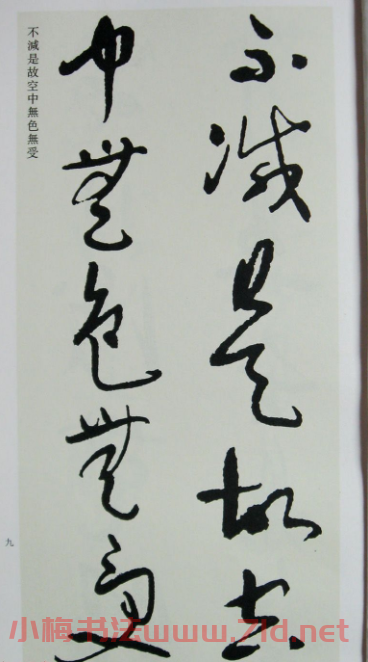 不減是故空
中無色無受
不減是故空中無色無受
九
小梅书法www.7ld.net